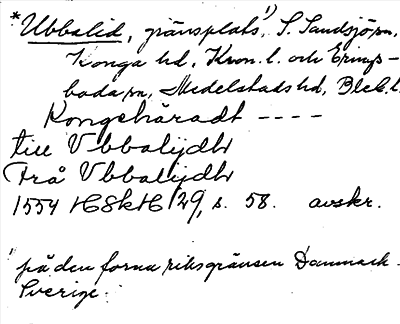 *Ubbalid, gränsplats¹⁾, S. Sandsjö sn,
Konga hd, Kron. l. och Erings-
boda sn, Medelstads hd, Blek. l.
Kongehäradt ----
till Vbbalijdh
Frå Vbbalijdh
1554 HSkH 29, s. 58. avskr.
¹⁾ på den forna riksgränsen Danmark-
Sverige.